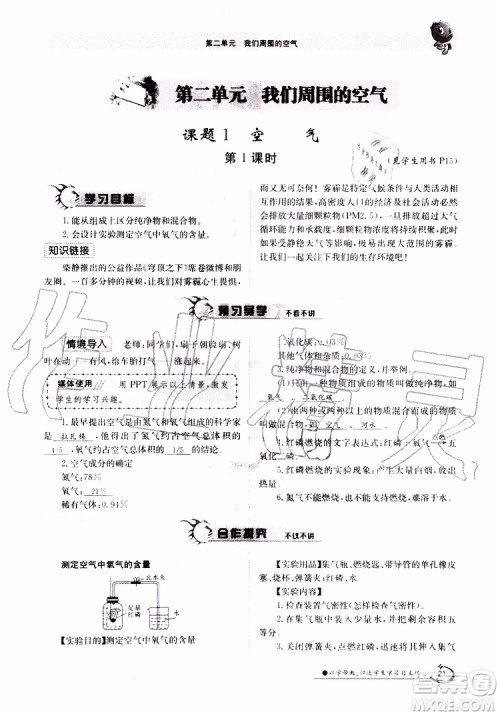 第二单元 我们周围的空气
第二单元 我们周围的空气
课题1 空 气
第1课时
(见学生用书 P15)
学习目标
1. 能从组成上区分纯净物和混合物。
2. 会设计实验测定空气中氧气的含量。
知识链接
柴静推出的公益作品《穹顶之下》席卷微博和朋
友圈。一百多分钟的视频,让我们对雾霾心生畏惧,
而又无可奈何! 雾霾是特定气候条件与人类活动
相互作用的结果。高密度人口的经济及社会活动必
然会排放大量细颗粒物(PM2.5),一旦排放
如果受静稳天气等影响,细颗粒物
范围的雾霾。让我们共同关注我们的生存环境!
预习导学 不看不讲
情境导入 老师:同学们,扇子朝脸扇,树
叶动——有风,给车胎打气——涨起来。
媒体使用 用PPT展示以上情景,激发
学生的学习兴趣。
1. 最早提出空气是由氮气和氧气组成的科学家
是 拉瓦锡 ,得出了氮气约占空气总体积的
4/5 ,氧气约占空气总体积的 1/5 的结论。
2. 空气成分的测定
氮气:78%
氧气: 21%
稀有气体:0.94%
二氧化碳: 0.03%
3. 纯净物和混合物的概念,并举例。
(1)只由一种物质组成的物质称为纯净物,如
氮气 、 二氧化碳 。
(2)由两种或两种以上的物质混合而成的物质
叫混合物,如 空气 、 河水 。
4. 红磷燃烧的文字表达式:红磷+氧气 五
氧化二磷。
5. 红磷燃烧的实验现象:产生大量白烟
6. 氮气不可燃,不助燃,不能供给呼吸。
合作探究 不议不讲
测定空气中氧气的含量
止水夹
红磷
水
【实验目的】测定空气中氧气的含量
【实验用品】集气瓶、燃烧匙、带导管的单孔橡皮
塞、烧杯、弹簧夹;红磷、水
1. 检查装置的气密性。
2. 点燃燃烧匙内的红磷,立即伸入集气瓶中,塞
紧橡皮塞。
3. 关闭弹簧夹,观察实验现象。待红磷熄灭并
21
作业精灵